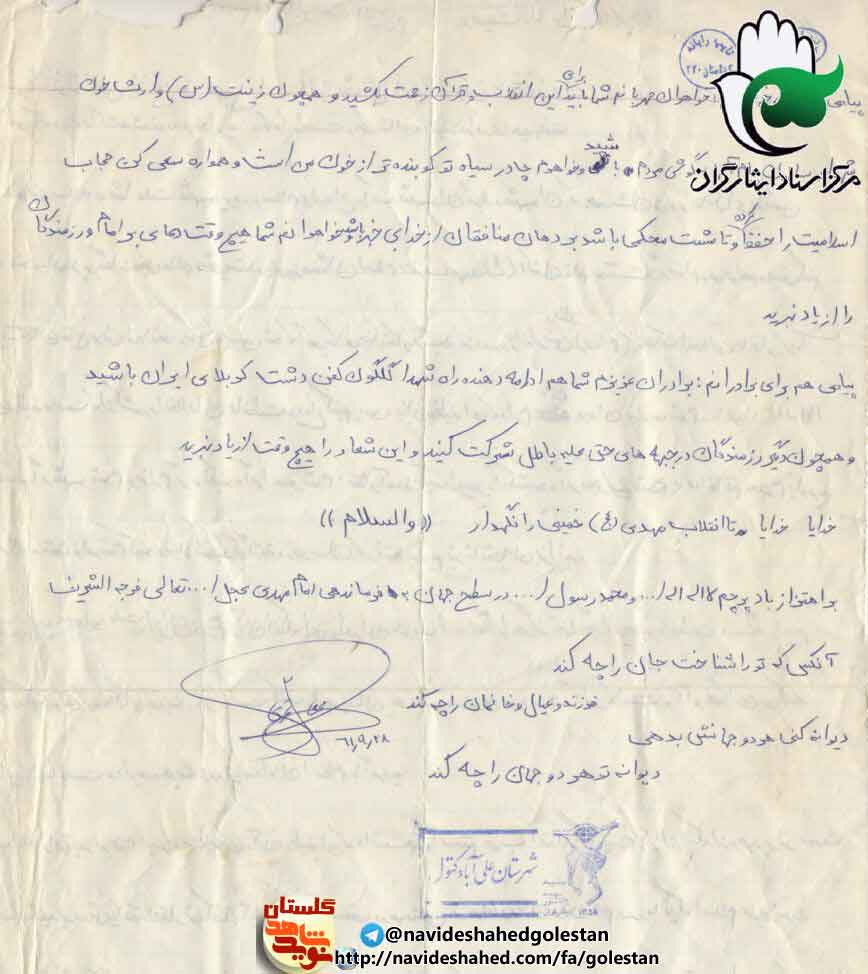 پیامی خواهران مهربانم شما باید برای این انقلاب و قرآن زحمت بکشید و همچون زینب (س) وارث خون
گوش مردم باشید و خواهرم چادر سیاه تو کوبنده تر از خون من است و همواره سعی کن حجاب
اسلامیت را حفظ کرده و تا مشت محکمی باشد بر دهان منافقان از خدا بی خبر و خواهرانم شما هیچ وقت دعای بر امام و رزمندگان
را از یاد نبرید
پیامی هم برای برادرانم : برادران عزیزم شما هم ادامه دهنده راه شهدا گلگون کفن دشت کربلای ایران باشید
و همچون دیگر رزمندگان در جبهه های حق علیه باطل شرکت کنید و این شعار را هیچ وقت از یاد نبرید
خدایا خدایا تا انقلاب مهدی (عج) خمینی را نگهدار ((والسلام))
بر اهتزاز باد پرچم لا اله الا ا... و محمد رسول ا... در سطح جهان به فرماندهی امام مهدی عجل ا... تعالی فرجه الشریف
آنکس که تو را شناخت جان را چه کند
فرزند و عیال و خانمان را چه کند
دیوانه کنی هر دو جهانش بدهی
دیوانه تو هر دو جهان را چه کند
۶۱٫۹٫۲۸
شهرستان علی آباد کتول
مرکز اسناد ایثارگران
گلستان
نوید شاهد
@navideshahedgolestan
http://navideshahed.com/fa/golestan